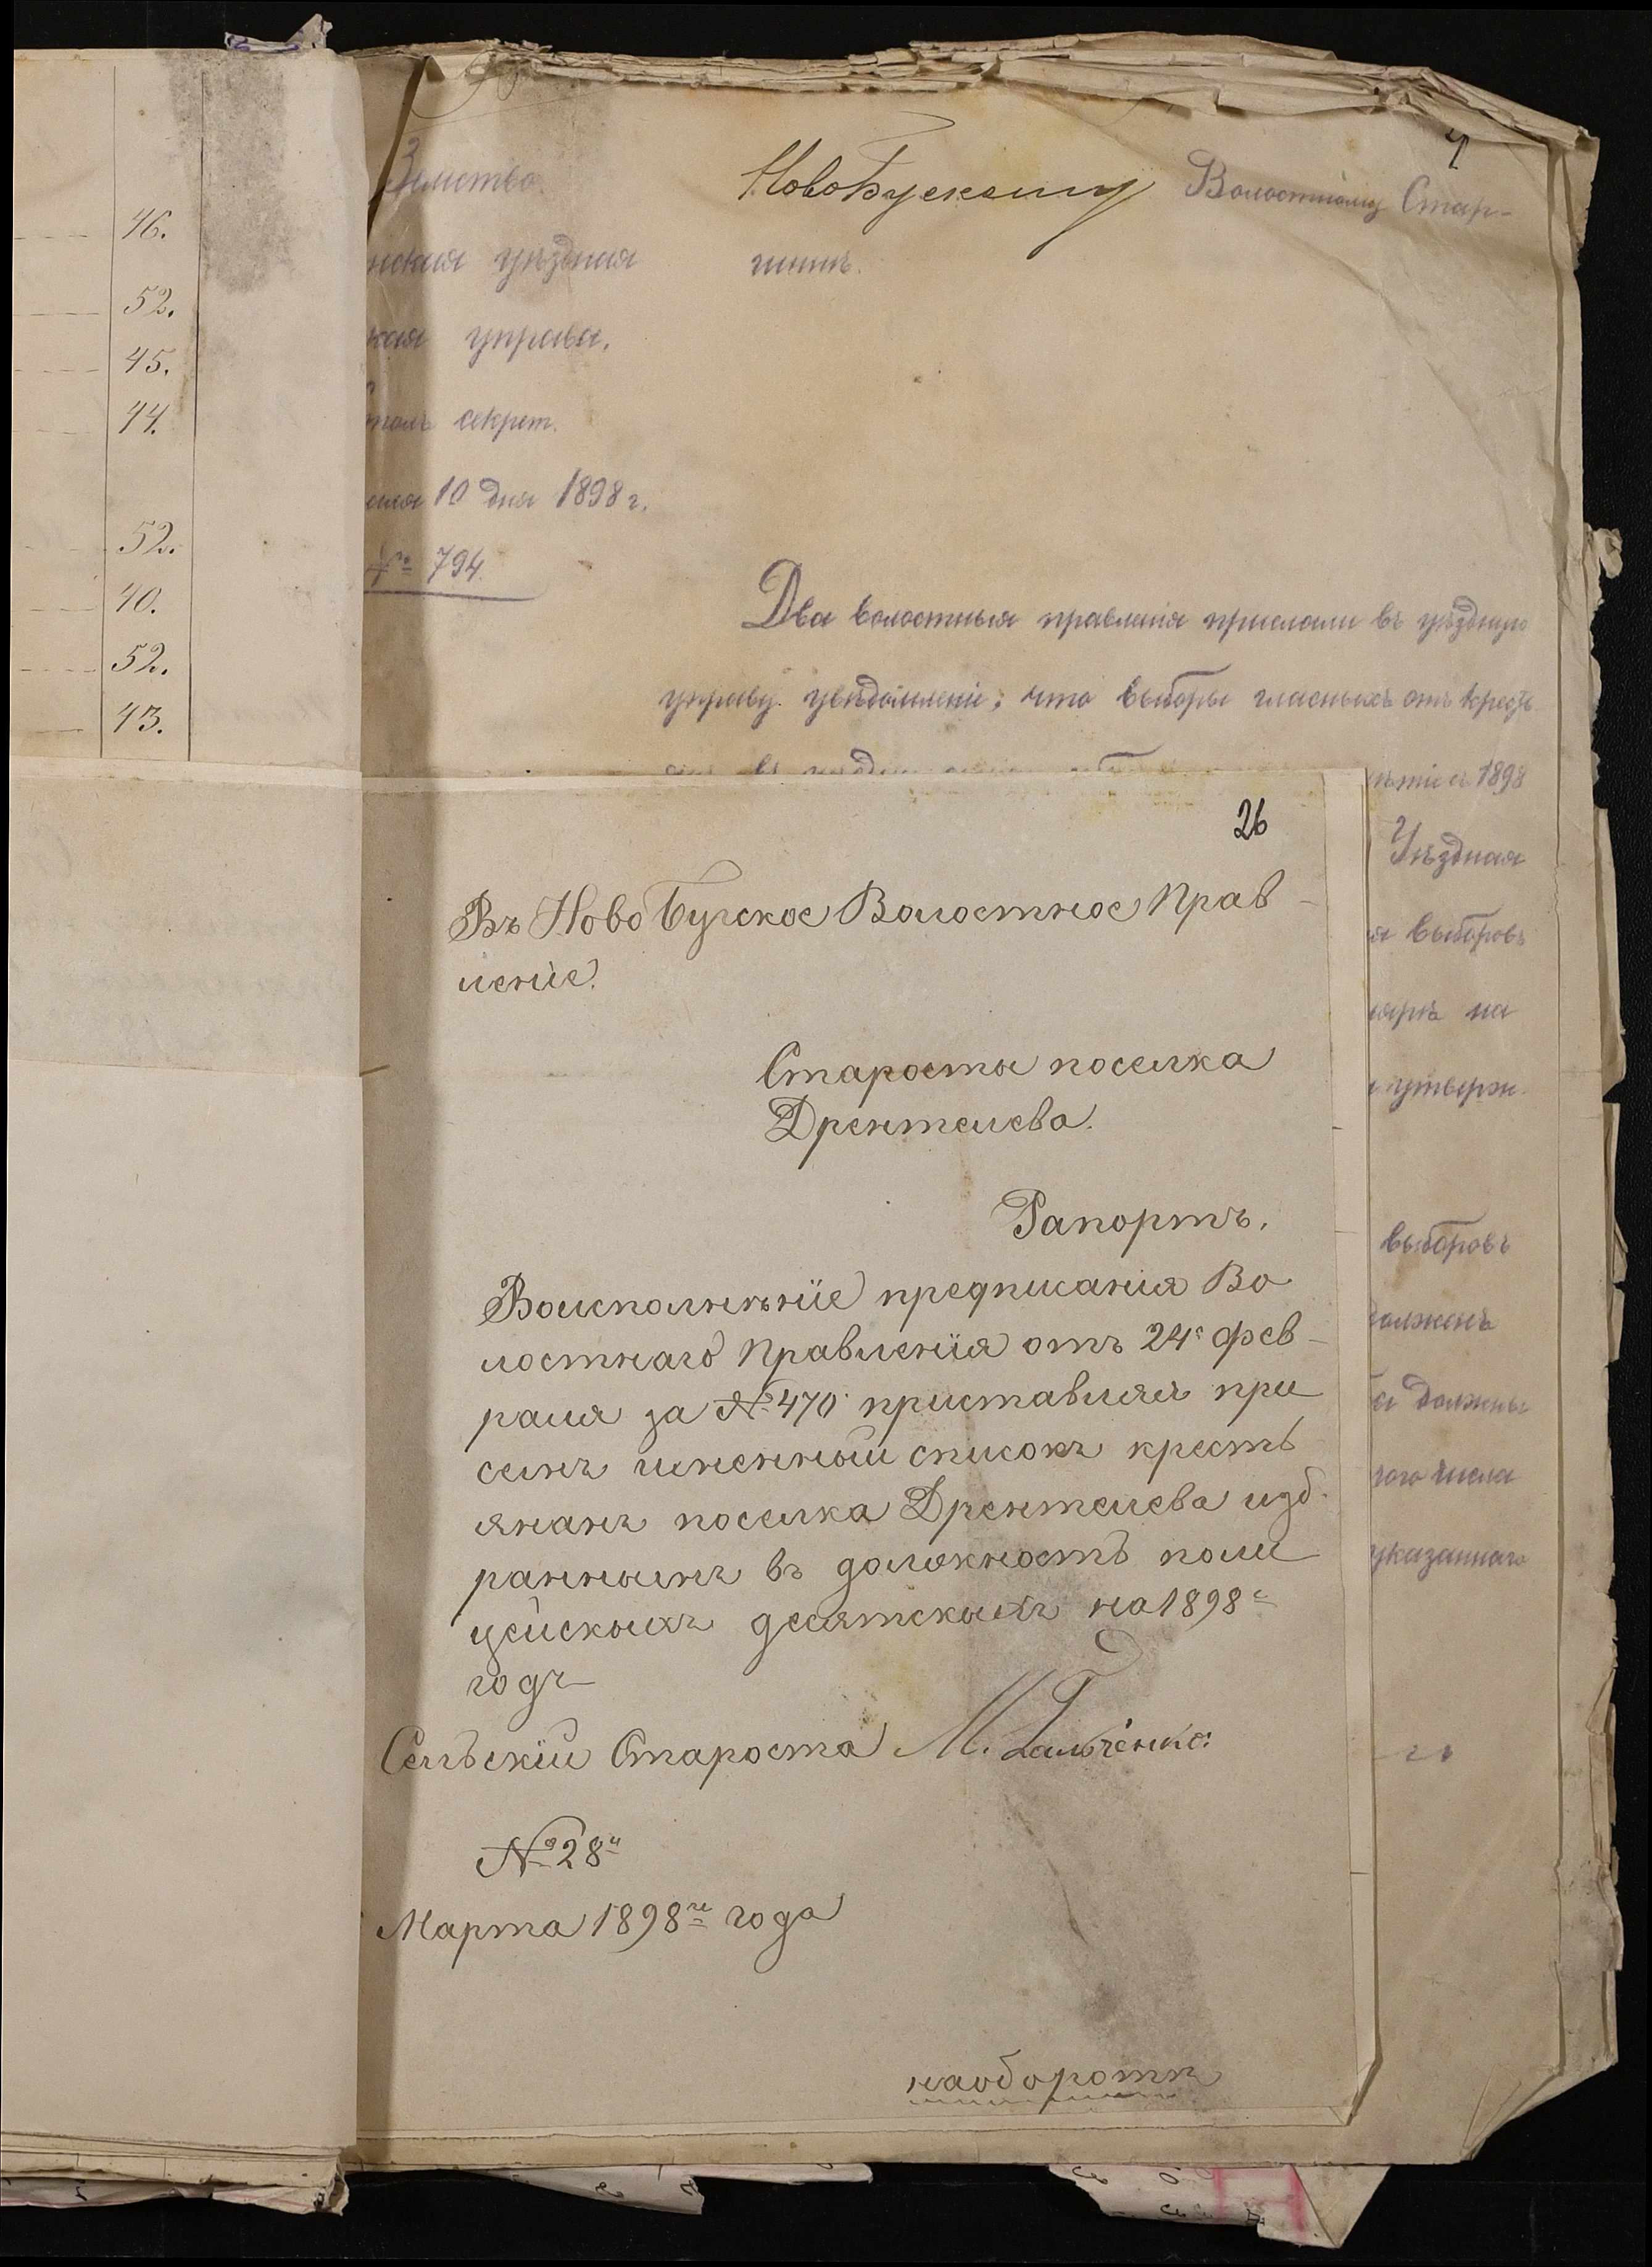 46.
52.
45.
44.
52.
40.
52.
43.
Земство
нская уѣздная
кая управа.
столъ секрет.
10 дня 1898 г.
№ 794.
4
НовоБугскому Волостному Стар-
шинѣ.
Два волостныя правленія прислали въ уѣздную
управу увѣдомленіе, что выборы гласныхъ отъ кресть
1898
Уѣздная
я выборовъ
на
утверж.
выборовъ
должен
должны
того числа
указаннаго
26
Въ Ново Бугское Волостное Прав-
леніе.
Старосты поселка
Дрентелева.
Рапортъ.
Воисполнѣніе предписанія Во
лостнаго Правленія отъ 24г фев-
раля за № 470 приставляя при
семъ именный списокъ кресть
янамъ поселка Дрентелева изб-
раннымъ въ должность поли
цейскыхъ десятскыхъ на 1898г
годъ
Сельскій Староста М. Гальченко
№ 28й
Марта 1898го года
наоборотѣ